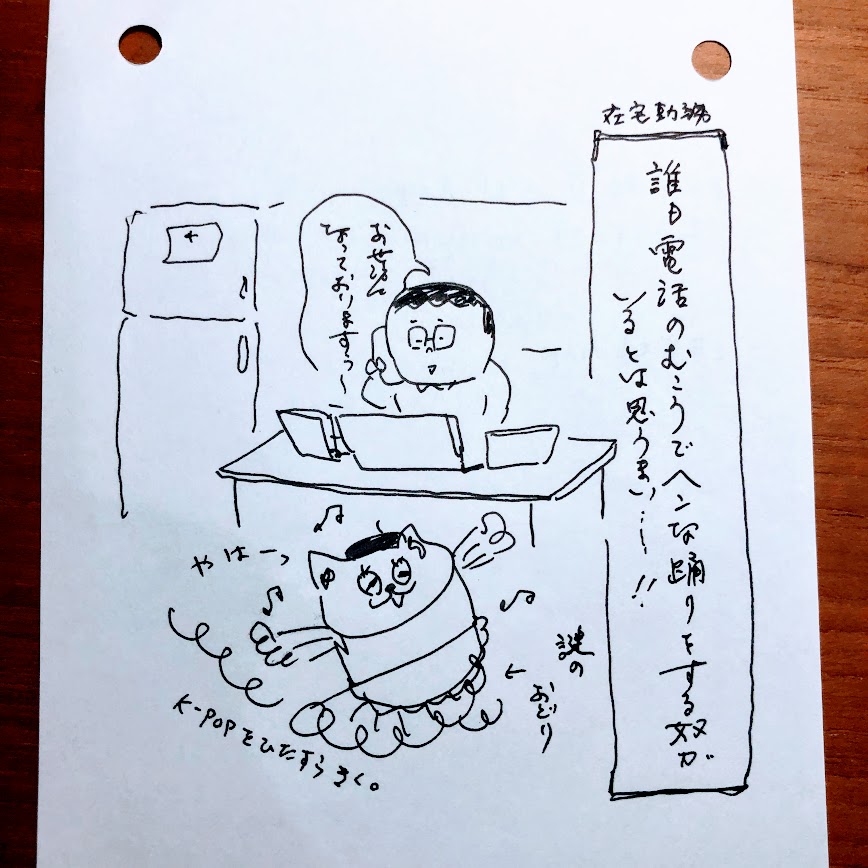 在宅勤務
誰も電話のむこうでヘンな踊りをする奴が
いるとは思うまい……!!
お世話に
なっておりますぅ〜
やはーっ
謎の
おどり
K-POPをひたすらきく。